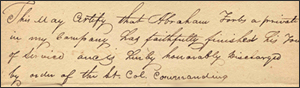 This May Certify that Abraham Foots a private
in my Company has faithfully finished his Tour
of Service and is hereby honorably discharged
by order of the Lt. Col. Commanding